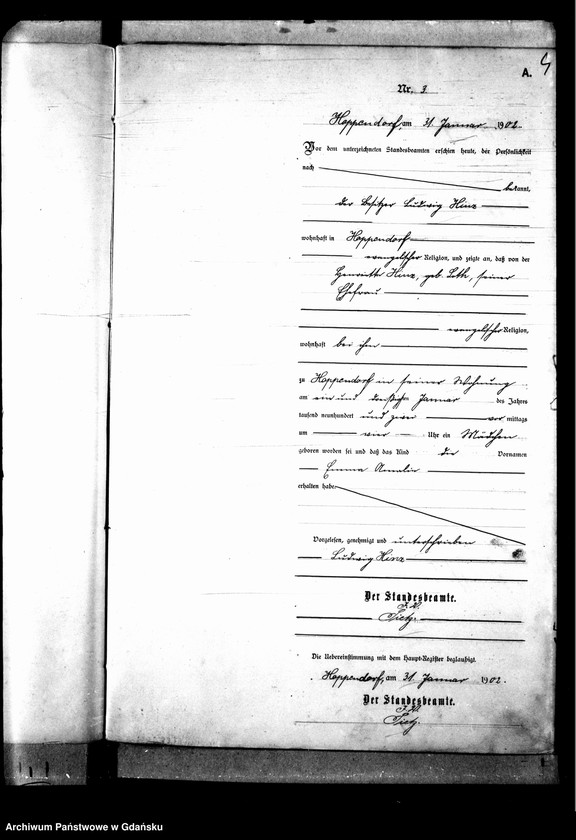 A. 4
Nr. 3.
Hoppendorf, am 31. Januar 1902.
Vor dem unterzeichneten Standesbeamten erschien heute, der Persönlichkeit
nach
bekannt,
der Besitzer Ludwig Hinz
wohnhaft in Hoppendorf
evangelischer Religion, und zeigte an, daß von der
Henriette Hinz, geb. Leth, seiner
Ehefrau
evangelischer Religion,
wohnhaft bei ihm
zu Hoppendorf in seiner Wohnung
am ein und dreißigsten Januar des Jahres
tausend neunhundert und zwei vormittags
um vier Uhr ein Mädchen
geboren worden sei und daß das Kind die Vornamen
Emma Amalie
erhalten habe
Vorgelesen, genehmigt und unterschrieben
Ludwig Hinz
Der Standesbeamte.
Tietz.
Die Uebereinstimmung mit dem Haupt-Register beglaubigt.
Hoppendorf, am 31. Januar 1902.
Der Standesbeamte.
Tietz.
Archiwum Państwowe w Gdańsku